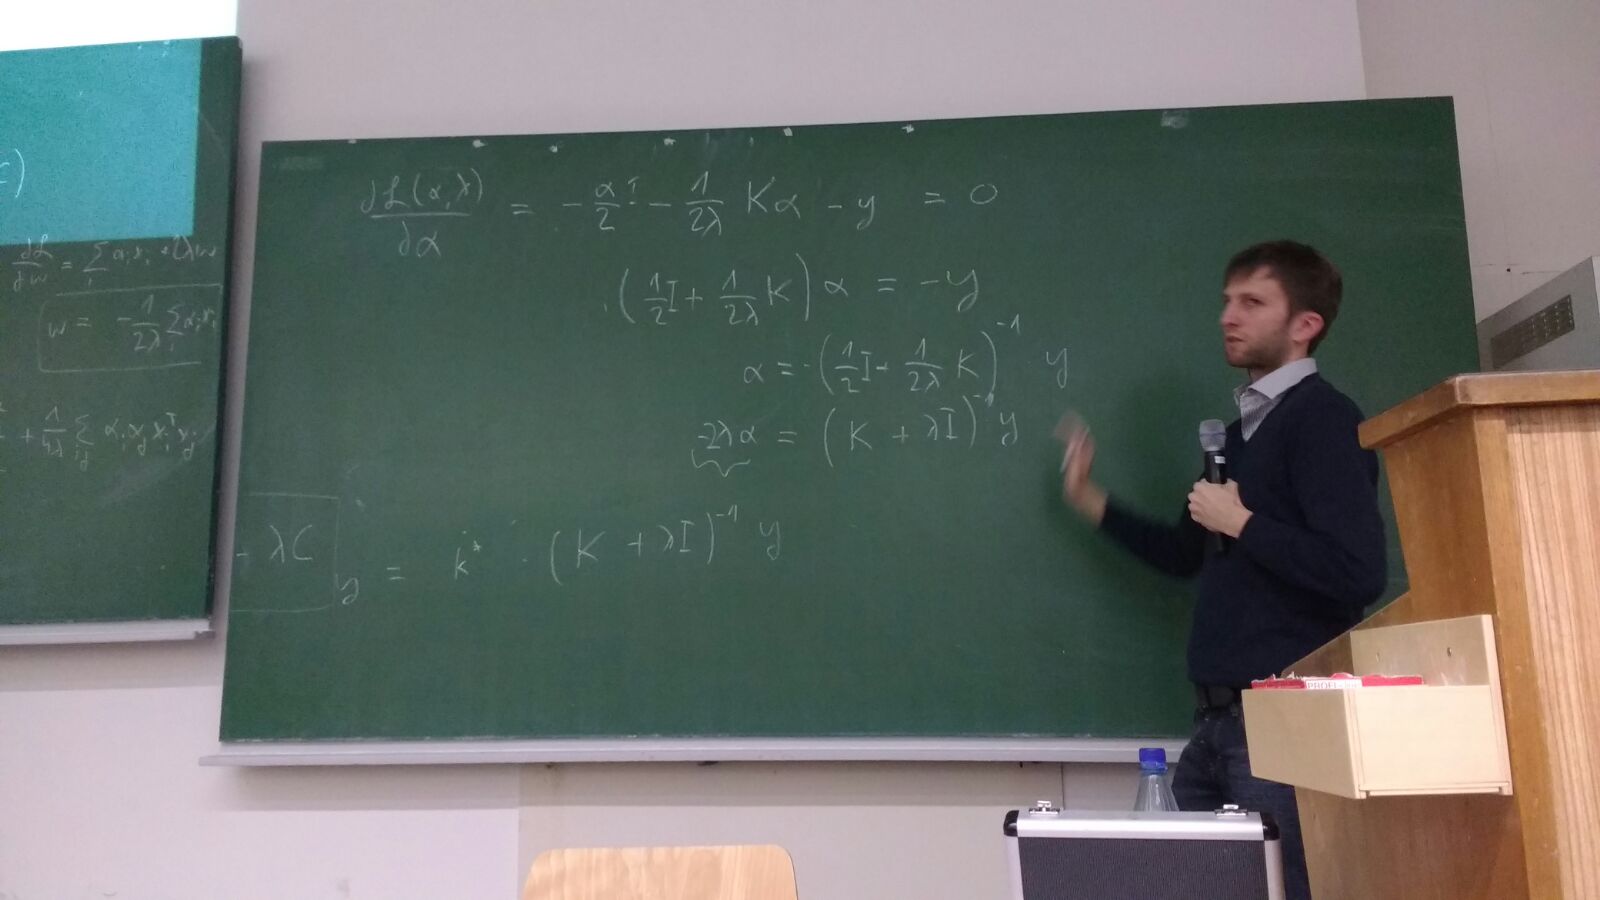 dL/dw = Σ_i α_i x_i + 2λw
w = - 1/2λ Σ_i α_i x_i
+ 1/4λ Σ_ij α_i α_j x_i^T x_j
λC
∂L(α,λ)/∂α = - α/2 I - 1/2λ Kα - y = 0
(1/2 I + 1/2λ K) α = -y
α = -(1/2 I + 1/2λ K)^-1 y
-2λα = (K + λI)^-1 y
y = k* · (K + λI)^-1 y
PROFI